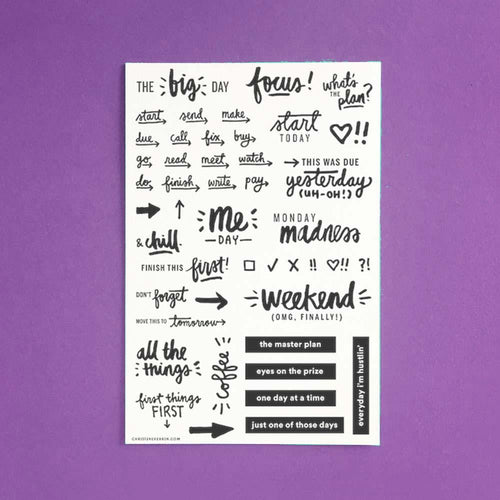 THE big DAY
focus!
what's
THE
plan?
start send make
due call fix buy
go read meet watch
do finish write pay
start
TODAY
♡!!
→ THIS WAS DUE
yesterday
(UH-OH!)
& chill.
me
— DAY —
MONDAY
madness
FINISH THIS first!
□ ✓ X !! ♡!! ?!
DON'T forget →
weekend
(OMG, FINALLY!)
MOVE THIS TO tomorrow →
all the
things
coffee
first things
FIRST
the master plan
eyes on the prize
one day at a time
just one of those days
everyday i'm hustlin'